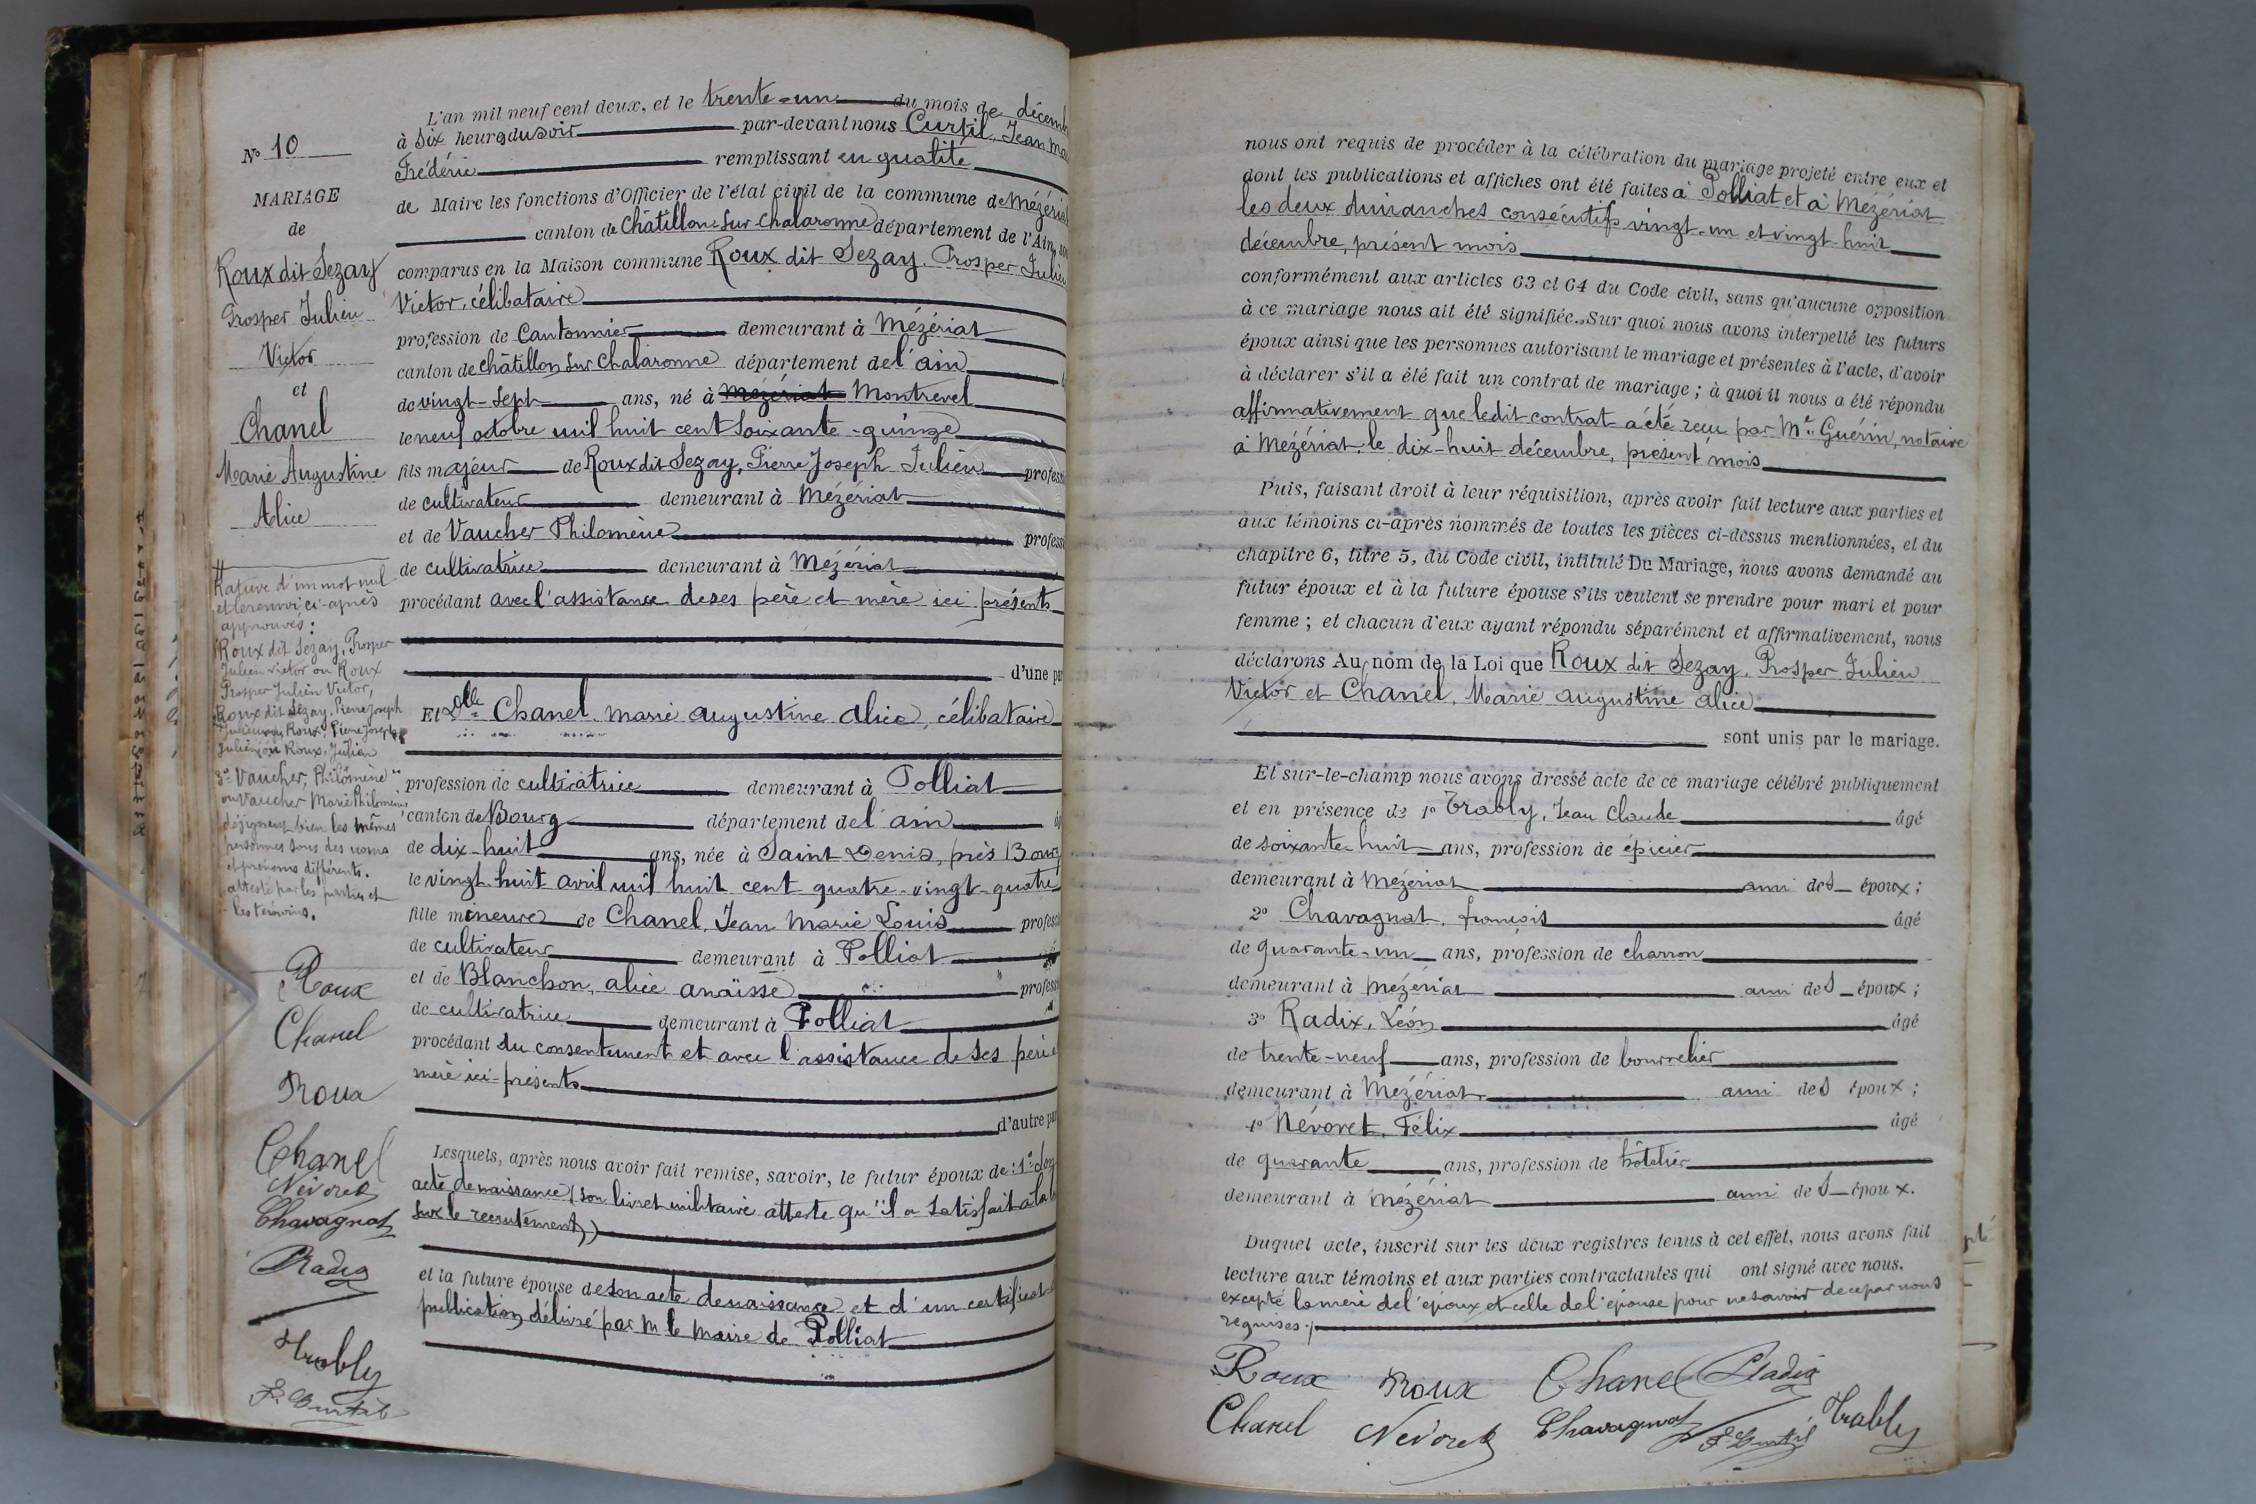 N° 10
MARIAGE
de
Roux dit Sezay
Prosper Julien
Victor
et
Chanel
Marie Augustine
Alice
Rature d'un mot nul
et le renvoi ci-après
approuvés :
Roux dit Sezay, Prosper
Julien Victor ou Roux
Prosper Julien Victor,
Roux dit Sezay, Pierre Joseph
Julien ou Roux, Pierre Joseph
Julien ou Roux, Julien
3° Vaucher, Philomène
ou Vaucher Marie Philomène
désignent bien les mêmes
personnes sous des noms
et prénoms différents.
attesté par les parties et
les témoins.
Roux
Chanel
Roux
Chanel
Névoret
Chavagnat
Radix
Trably
F. Curtil
L'an mil neuf cent deux, et le trente-un du mois de décemb
à six heures du soir par-devant nous Curtil, Jean Ma
Frédéric remplissant en qualité
de Maire les fonctions d'Officier de l'état civil de la commune de Mézériat
canton de Châtillon-sur-Chalaronne département de l'Ain, son
comparus en la Maison commune Roux dit Sezay, Prosper Julien
Victor, célibataire
profession de Cantonnier demeurant à Mézériat
canton de Châtillon sur Chalaronne département de l'ain
de vingt-sept ans, né à Mézériat Montrevel
le neuf octobre mil huit cent soixante-quinze
fils majeur de Roux dit Sezay, Pierre Joseph Julien profess
de cultivateur demeurant à Mézériat
et de Vaucher Philomène profess
de cultivatrice demeurant à Mézériat
procédant avec l'assistance de ses père et mère ici présents
d'une pa
Et Dlle Chanel, marie augustine alice, célibataire
profession de cultivatrice demeurant à Polliat
canton de Bourg département de l'ain
de dix-huit ans, née à Saint Denis, près Bourg
le vingt-huit avril mil huit cent quatre-vingt-quatre
fille mineure de Chanel, Jean Marie Louis profess
de cultivateur demeurant à Polliat
et de Blanchon, alice anaïsse profess
de cultivatrice demeurant à Polliat
procédant du consentement et avec l'assistance de ses père e
mère ici-présents
d'autre pa
Lesquels, après nous avoir fait remise, savoir, le futur époux de : 1° son
acte de naissance (son livret militaire atteste qu'il a satisfait à la l
sur le recrutement)
et la future épouse de son acte de naissance et d'un certificat de
publication délivré par M le maire de Polliat
nous ont requis de procéder à la célébration du mariage projeté entre eux et
dont les publications et affiches ont été faites à Polliat et à Mézériat
les deux dimanches consécutifs vingt-un et vingt-huit
décembre, présent mois
conformément aux articles 63 et 64 du Code civil, sans qu'aucune opposition
à ce mariage nous ait été signifiée. Sur quoi nous avons interpellé les futurs
époux ainsi que les personnes autorisant le mariage et présentes à l'acte, d'avoir
à déclarer s'il a été fait un contrat de mariage ; à quoi il nous a été répondu
affirmativement que ledit contrat a été reçu par Me Guérin, notaire
à Mézériat, le dix-huit décembre, présent mois
Puis, faisant droit à leur réquisition, après avoir fait lecture aux parties et
aux témoins ci-après nommés de toutes les pièces ci-dessus mentionnées, et du
chapitre 6, titre 5, du Code civil, intitulé Du Mariage, nous avons demandé au
futur époux et à la future épouse s'ils veulent se prendre pour mari et pour
femme ; et chacun d'eux ayant répondu séparément et affirmativement, nous
déclarons Au nom de la Loi que Roux dit Sezay, Prosper Julien
Victor et Chanel, Marie augustine alice
sont unis par le mariage.
Et sur-le-champ nous avons dressé acte de ce mariage célébré publiquement
et en présence de 1° Trably, Jean Claude âgé
de soixante-huit ans, profession de épicier
demeurant à Mézériat ami des époux ;
2° Chavagnat, françois âgé
de quarante-un ans, profession de charron
demeurant à Mézériat ami des époux ;
3° Radix, Léon âgé
de trente-neuf ans, profession de bourrelier
demeurant à Mézériat ami des époux ;
4° Névoret, Félix âgé
de quarante ans, profession de hôtelier
demeurant à Mézériat ami des époux.
Duquel acte, inscrit sur les deux registres tenus à cet effet, nous avons fait
lecture aux témoins et aux parties contractantes qui ont signé avec nous.
excepté la mère de l'époux et celle de l'épouse pour ne savoir de ce par nous
requises.
Roux Roux Chanel Radix
Chanel Névoret Chavagnat F. Curtil Trably